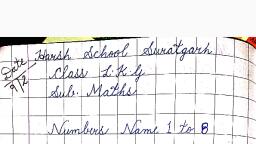 Date
9/2
Harsh School Suratgarh
Class L.K.G
Sub. Maths
Numbers Name 1 to 8